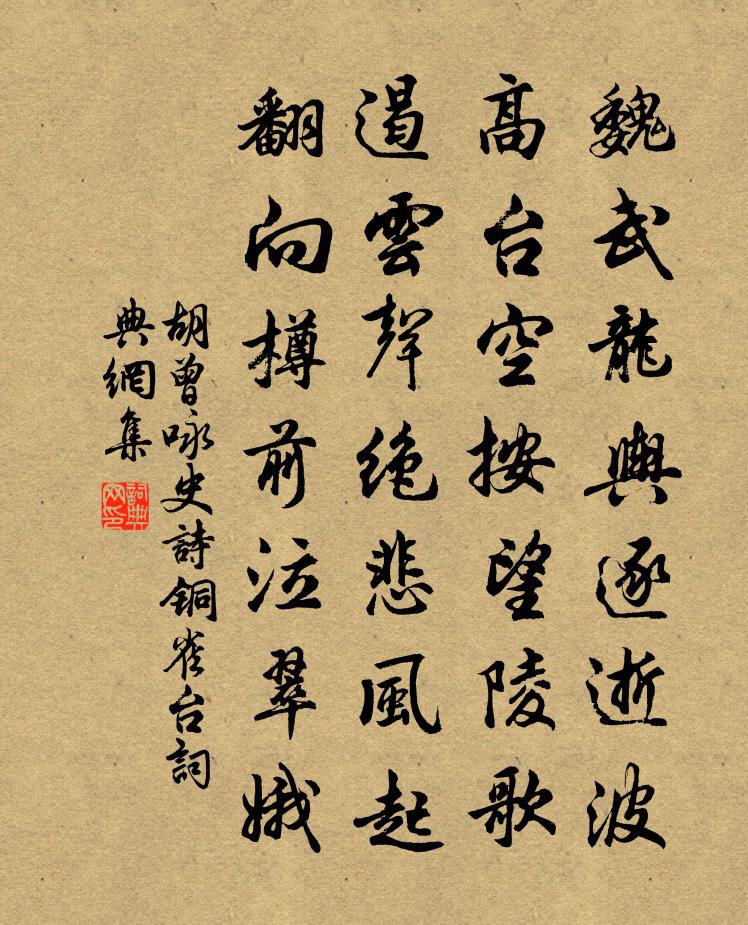 魏武龍輿逐逝波
高台空按望陵歌
遏雲聲絶悲風起
翻向樽前泣翠娥
胡曾咏史詩铜雀台詞
典網集
詞典
网印